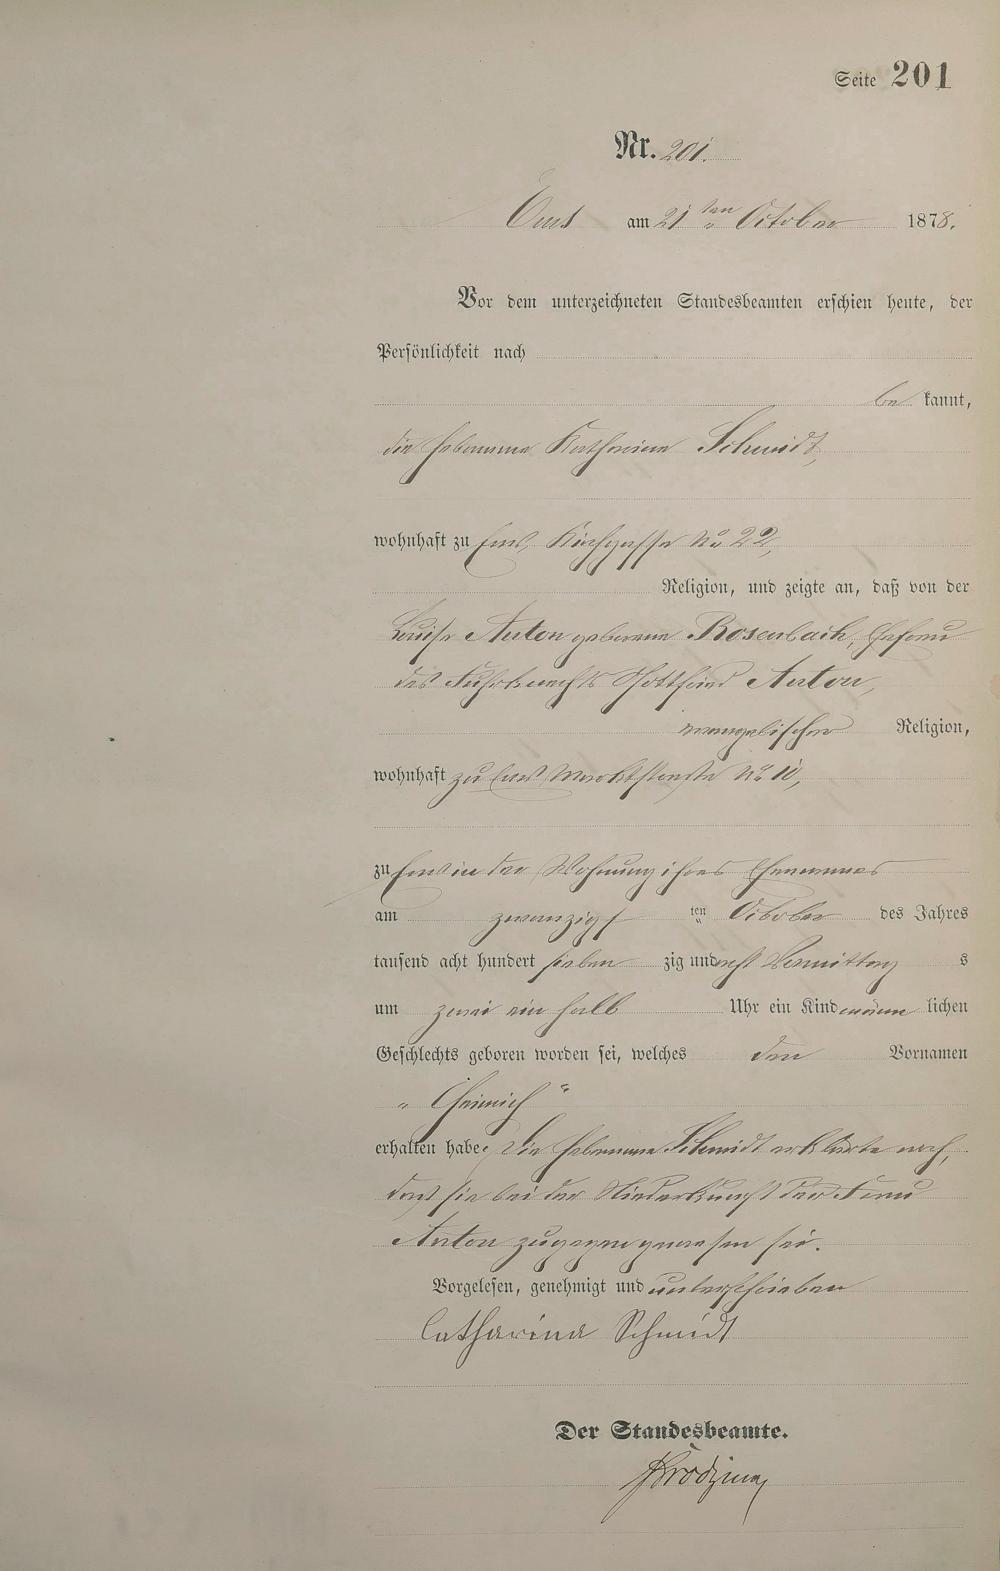 Seite 201
Nr. 201.
Ems am 21ten October 1878.
Vor dem unterzeichneten Standesbeamten erschien heute, der
Persönlichkeit nach
be kannt,
die Hebamme Katharina Schmidt,
wohnhaft zu Ems, Kirchgasse No 22,
Religion, und zeigte an, daß von der
Louise Anton geborene Rosenbach, Ehefrau
des Fuhrknechts Gottfried Anton,
evangelischer Religion,
wohnhaft zu Ems Marktstraße No 10,
zu Ems in der Wohnung ihres Ehemannes
am zwanzigsten October des Jahres
tausend acht hundert sieben zig und acht Vormittag s
um zwei ein halb Uhr ein Kind männ lichen
Geschlechts geboren worden sei, welches den Vornamen
„Heinrich“
erhalten habe. Die Hebamme Schmidt erklärte noch,
daß sie bei der Niederkunft der Frau
Anton zugegen gewesen sei.
Vorgelesen, genehmigt und unterschrieben
Catharina Schmidt
Der Standesbeamte.